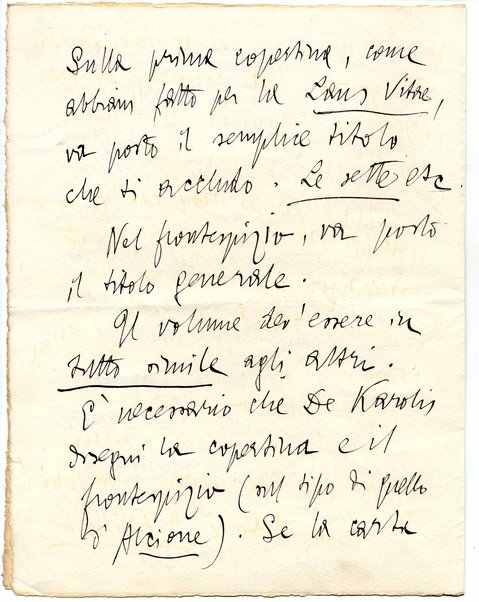 Sulla prima copertina, come
abbiam fatto per la Laus Vitae,
va posto il semplice titolo
che ti accludo. Le sette etc
Nel frontespizio, va posto
il titolo generale.
Il volume dev'essere in
tutto simile agli altri.
E' necessario che De Karolis
disegni la copertina e il
frontespizio (sul tipo di quello
d'Alcione). Se la carta